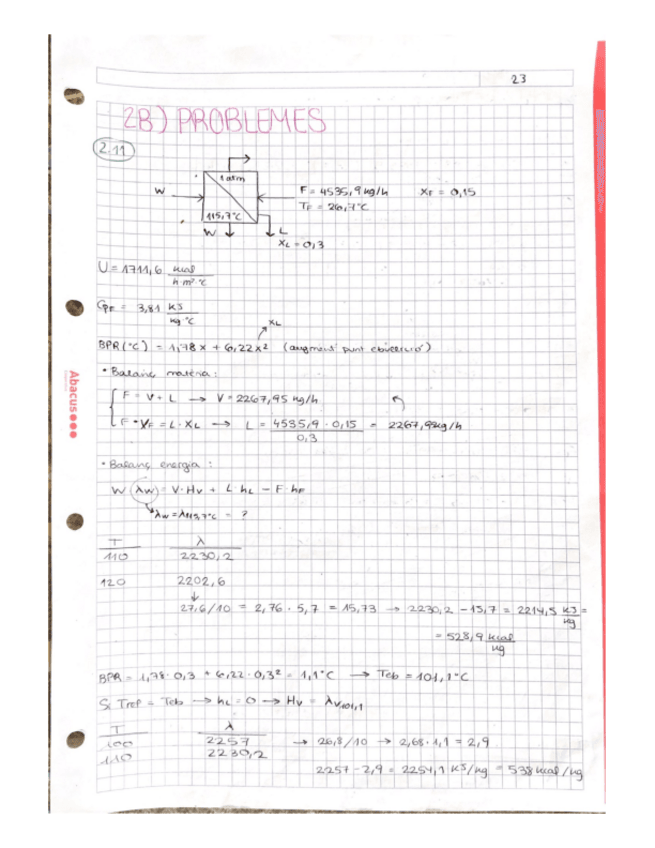 23
2B) PROBLEMES
2.11
1 atm
W
F = 4535,9 kg/h
XF = 0,15
TF = 26,7°C
115,7°C
W
L
XL = 0,3
U = 1711,6 kcal / h·m²·°C
CpF = 3,81 kJ / kg °C
XL
BPR (°C) = 1,78 x + 6,22 x² (augment punt ebullició)
• Balanç matèria:
F = V + L → V = 2267,95 kg/h
F · XF = L · XL → L = 4535,9 · 0,15 / 0,3 = 2267,95 kg/h
• Balanç energia:
W λw = V · Hv + L · hL − F · hF
λw = λ115,7°C = ?
T λ
110 2230,2
120 2202,6
27,6/10 = 2,76 · 5,7 = 15,73 → 2230,2 − 15,7 = 2214,5 kJ/kg =
= 528,9 kcal/kg
BPR = 1,78 · 0,3 + 6,22 · 0,3² = 1,1°C → Teb = 101,1°C
Si Tref = Teb → hL = 0 → Hv = λv101,1
T λ
100 2257 → 26,8/10 → 2,68 · 1,1 = 2,9
110 2230,2
2257 − 2,9 = 2254,1 kJ/kg = 538 kcal/kg
Abacus